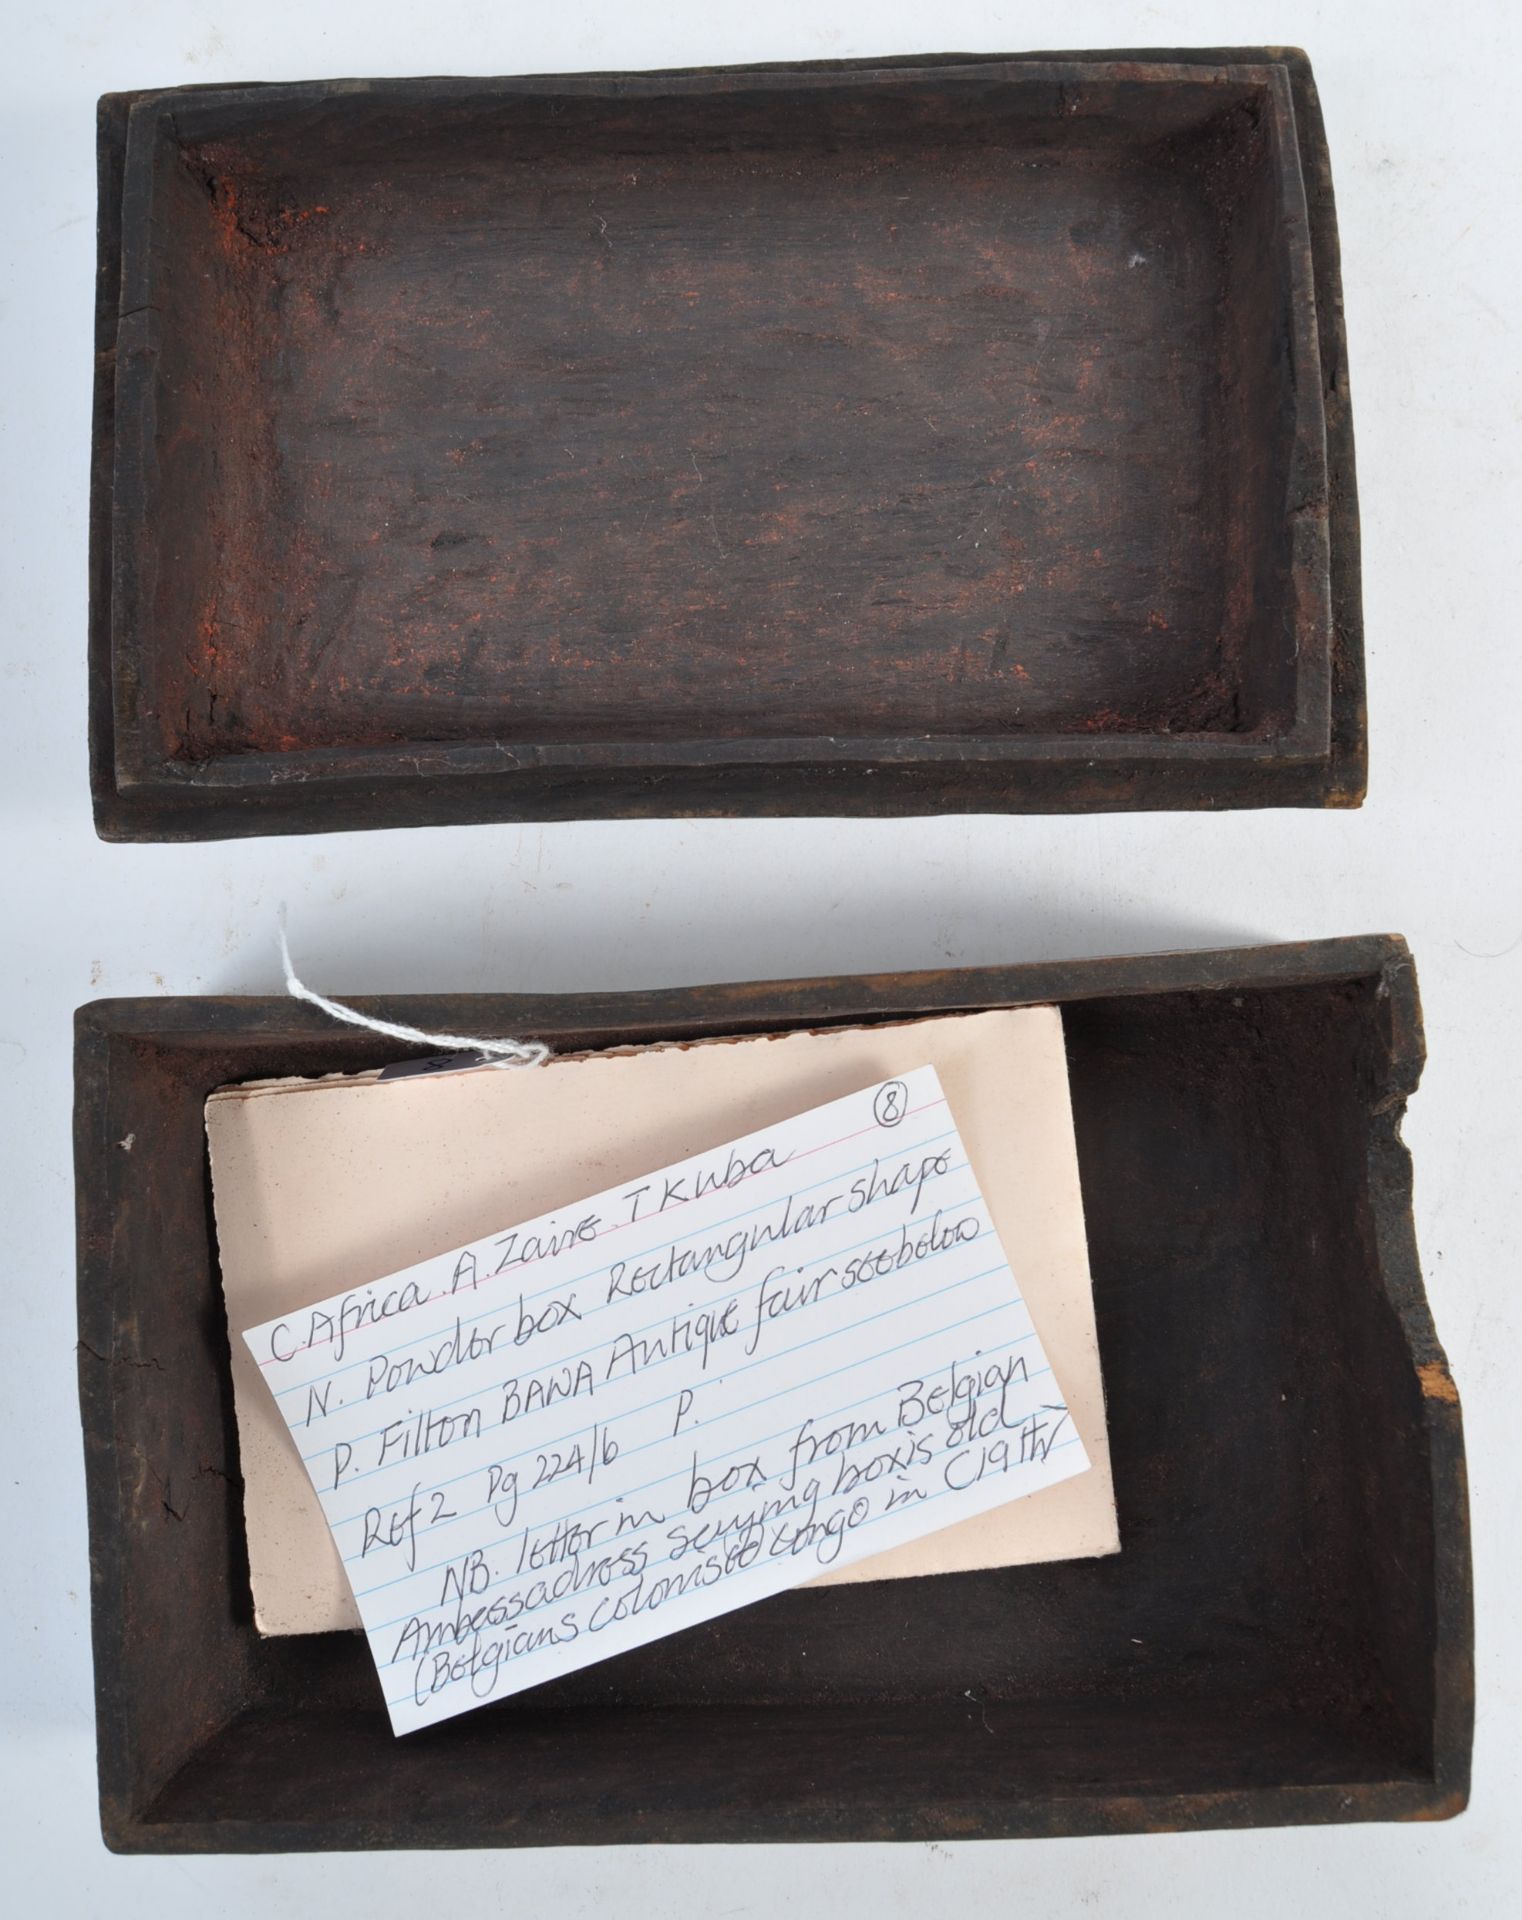 8
C. Africa. A. Zaire. T Kuba
N. Powder box Rectangular shape
P. Filton BAWA Antique fair see below
Ref 2 Pg 224/6 P.
NB. letter in box from Belgian
Ambessadress seying box is old
(Belgians colonised Congo in C19th)